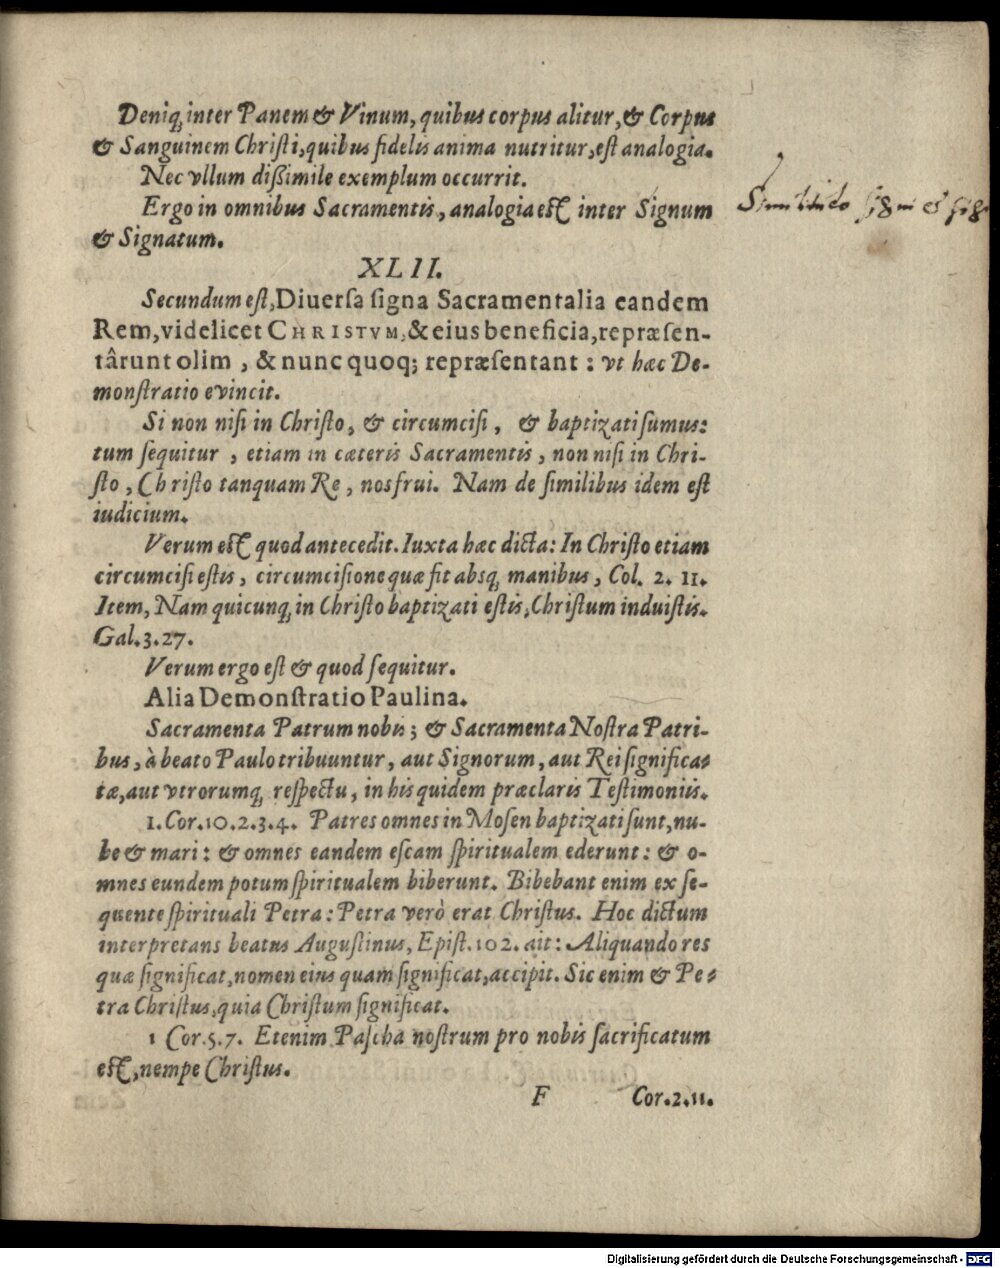 Deniq; inter Panem & Vinum, quibus corpus alitur, & Corpus
& Sanguinem Christi, quibus fidelis anima nutritur, est analogia.
Nec vllum dißimile exemplum occurrit.
Ergo in omnibus Sacramentis, analogia est inter Signum
& Signatum.
XLII.
Secundum est, Diuersa signa Sacramentalia eandem
Rem, videlicet CHRISTVM, & eius beneficia, repræsen-
târunt olim, & nunc quoq; repræsentant: vt hæc De-
monstratio evincit.
Si non nisi in Christo, & circumcisi, & baptizati sumus:
tum sequitur, etiam in cæteris Sacramentis, non nisi in Chri-
sto, Christo tanquam Re, nos frui. Nam de similibus idem est
iudicium.
Verum est quod antecedit. Iuxta hæc dicta: In Christo etiam
circumcisi estis, circumcisione quæ fit absq; manibus, Col. 2. 11.
Item, Nam quicunq; in Christo baptizati estis, Christum induistis.
Gal. 3. 27.
Verum ergo est & quod sequitur.
Alia Demonstratio Paulina.
Sacramenta Patrum nobis; & Sacramenta Nostra Patri-
bus, à beato Paulo tribuuntur, aut Signorum, aut Rei significa-
tæ, aut vtrorumq; respectu, in his quidem præclaris Testimoniis.
1. Cor. 10. 2. 3. 4. Patres omnes in Mosen baptizati sunt, nu-
be & mari: & omnes eandem escam spiritualem ederunt: & o-
mnes eundem potum spiritualem biberunt. Bibebant enim ex se-
quente spirituali Petra: Petra verò erat Christus. Hoc dictum
interpretans beatus Augustinus, Epist. 102. ait: Aliquando res
quæ significat, nomen eius quam significat, accipit. Sic enim & Pe-
tra Christus, quia Christum significat.
1 Cor. 5. 7. Etenim Pascha nostrum pro nobis sacrificatum
est, nempe Christus.
F Cor. 2. 11.
Digitalisierung gefördert durch die Deutsche Forschungsgemeinschaft - DFG